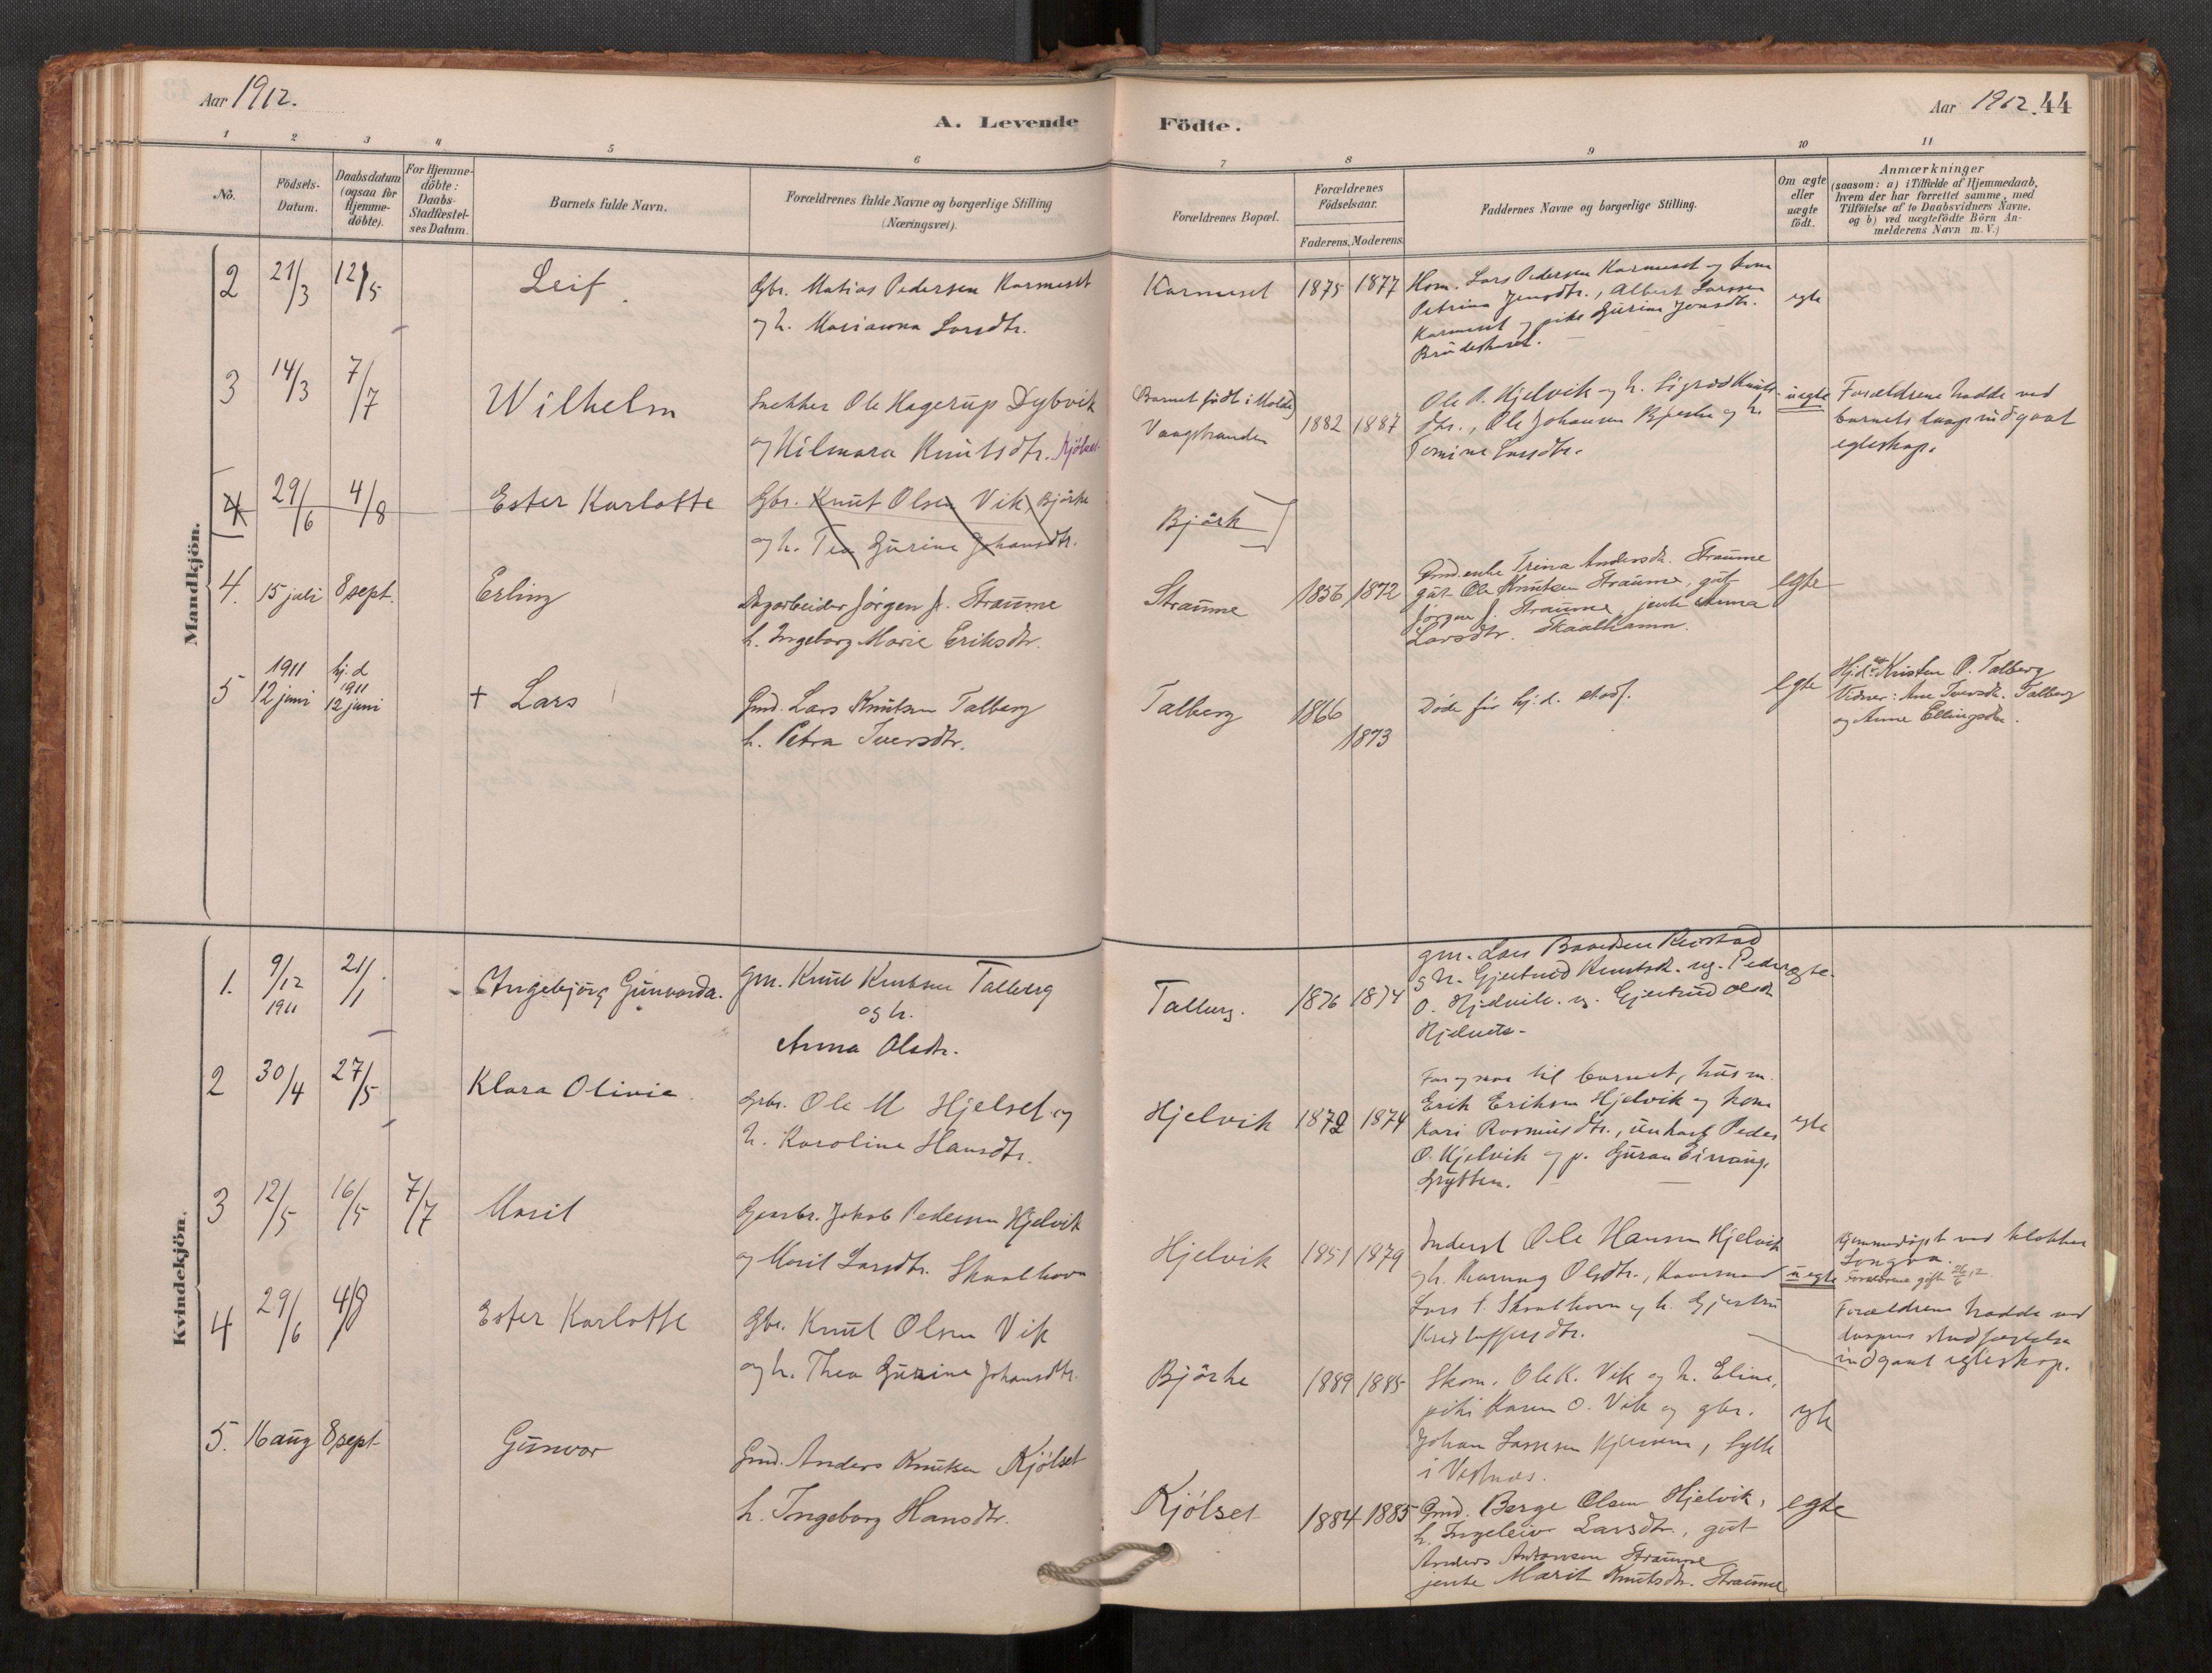 Aar 1912.
A. Levende Födte.
Aar 1912. 44
1 2 3 4 5 6 7 8 9 10 11
No.
Födsels-
Datum.
Daabsdatum
(ogsaa for
Hjemme-
döbte).
For Hjemme-
döbte:
Daabs-
Stadfæstel-
ses Datum.
Barnets fulde Navn.
Forældrenes fulde Navne og borgerlige Stilling
(Næringsvei).
Forældrenes Bopæl.
Forældrenes
Födselsaar.
Faderens. Moderens.
Faddernes Navne og borgerlige Stilling.
Om ægte
eller
uægte
födt.
Anmærkninger
(saasom: a) i Tilfælde af Hjemmedaab,
hvem der har forrettet samme, med
Tilföielse af to Daabsvidners Navne,
og b) ved uægtefödte Börn An-
melderens Navn m. V.)
Mandkjön.
2 21/3 12/5 Leif.
Gbr. Matias Pedersen Karmeset
og h. Marianna Larsdtr.
Karmeset 1875 1877
Hom. Lars Pedersen Karmeset og kona
Petrina Jensdtr., Albert Larssen
Karmeset og pike Gurine Jensdtr.
egte
3 14/3 7/7 Wilhelm
Snekker Ole Hagerup Dybvik
og Hilmara Knutsdtr. Kjölset
Barnet födt i Molde
Vaagstranden 1882 1887
Ole P. Hjelvik og h. Sigrid Knuts-
dtr., Ole Johansen Bjerke og h.
Larsdtr.
uegte
Forældrene hadde ved
barnets daap indgaat
egteskap.
4 29/6 4/8 Ester Karlotte
Gbr. Knut Olsen Vik, Björke
og h. Tea Gurine Johansdtr.
Björk
4. 15 juli 8 sept. Erling
Dagarbeider Jörgen J. Straume
h. Ingeborg Marie Eriksdtr.
Straume 1856 1872
Gmd.enke Trina Andersdtr. Straume
gut Ole Knutsen Straume, gut
Jörgen J. Straume, jente Anna
Larsdtr. Skaalhamn.
egte
5 1911 12 juni hj.d. 1911 12 juni † Lars
Gmd. Lars Knutsen Talberg
h. Petra Iversdtr.
Talberg 1866 1873
Döde för hj.d. stadf.
egte
Hjd. av Kristen P. Talberg
Vidner: Ane Iversdtr. Talberg
og Anne Ellingsdtr.
Kvindekjön.
1. 9/12 1911 21/1. Ingebjörg Gunvarda.
Gm. Knut Knutsen Talberg
og h.
Anna Olsdtr.
Talberg. 1876 1874
gm. Lars Baardsen
g h. Gjertrud Knutsdtr. ug. Peder
O. Hjelvik. ug. Gjertrud Olsdtr
egte.
2 30/4 27/5 Klara Olivie.
Gbr. Ole M Hjelset og
h. Karoline Hansdtr.
Hjelvik 1872 1874
Far og mor til barnet, husm.
Erik Eriksen Hjelvik og kona
Kari Rasmusdtr., unkarl Peder
O. Hjelvik og p. Guran
Grytten.
egte
3 12/5 16/5 7/7 Marit
Gaarbr. Jakob Pedersen Hjelvik
og Marit Larsdtr. Skaalhavn
Hjelvik 1851 1879
Inderst Ole Hansen Hjelvik
og h. Olsdtr.,
Lars Skaalhavn og h. Gjertru
Kristoffersdtr.
uegte
Hjemmedöpt ved klokker
Songva.
Forældrene gift 26/6 12.
Forældrene hadde ved
daapens stadfæstelse
indgaat egteskap.
4 29/6 4/8 Ester Karlotte
Gbr. Knut Olsen Vik
og h. Thea Gurine Johansdtr.
Björke 1889 1885
Skom. Ole K. Vik og h. Eline,
pike Karen O. Vik og gbr.
Johan Larssen, Sylte
i Vestnes.
egte
5. 16 aug 8 sept. Gunvor
Gmd. Anders Knutsen Kjölset
h. Ingeborg Hansdtr.
Kjölset 1884 1885
Gmd. Berge Olsen Hjelvik,
h. Ingeleiv Larsdtr., gut
Anders Antonsen Straume
jente Marit Knutsdtr. Straume
egte